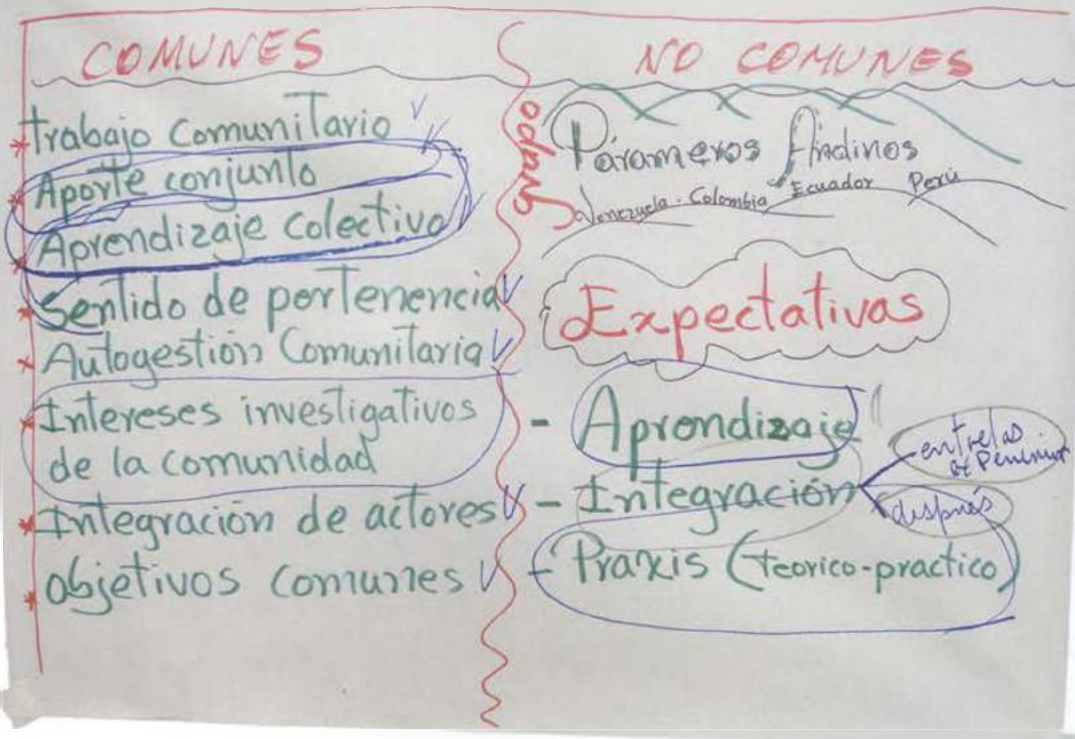 COMUNES
* Trabajo Comunitario
* Aporte conjunto
* Aprendizaje Colectivo
* Sentido de pertenencia
* Autogestión Comunitaria
* Intereses investigativos
de la comunidad
* Integración de actores
* objetivos comunes
NO COMUNES
Grupo
Párameros Andinos
Venezuela - Colombia Ecuador Perú
Expectativas
- Aprendizaje
- Integración
entre las
después
- Praxis (teorico-practico)